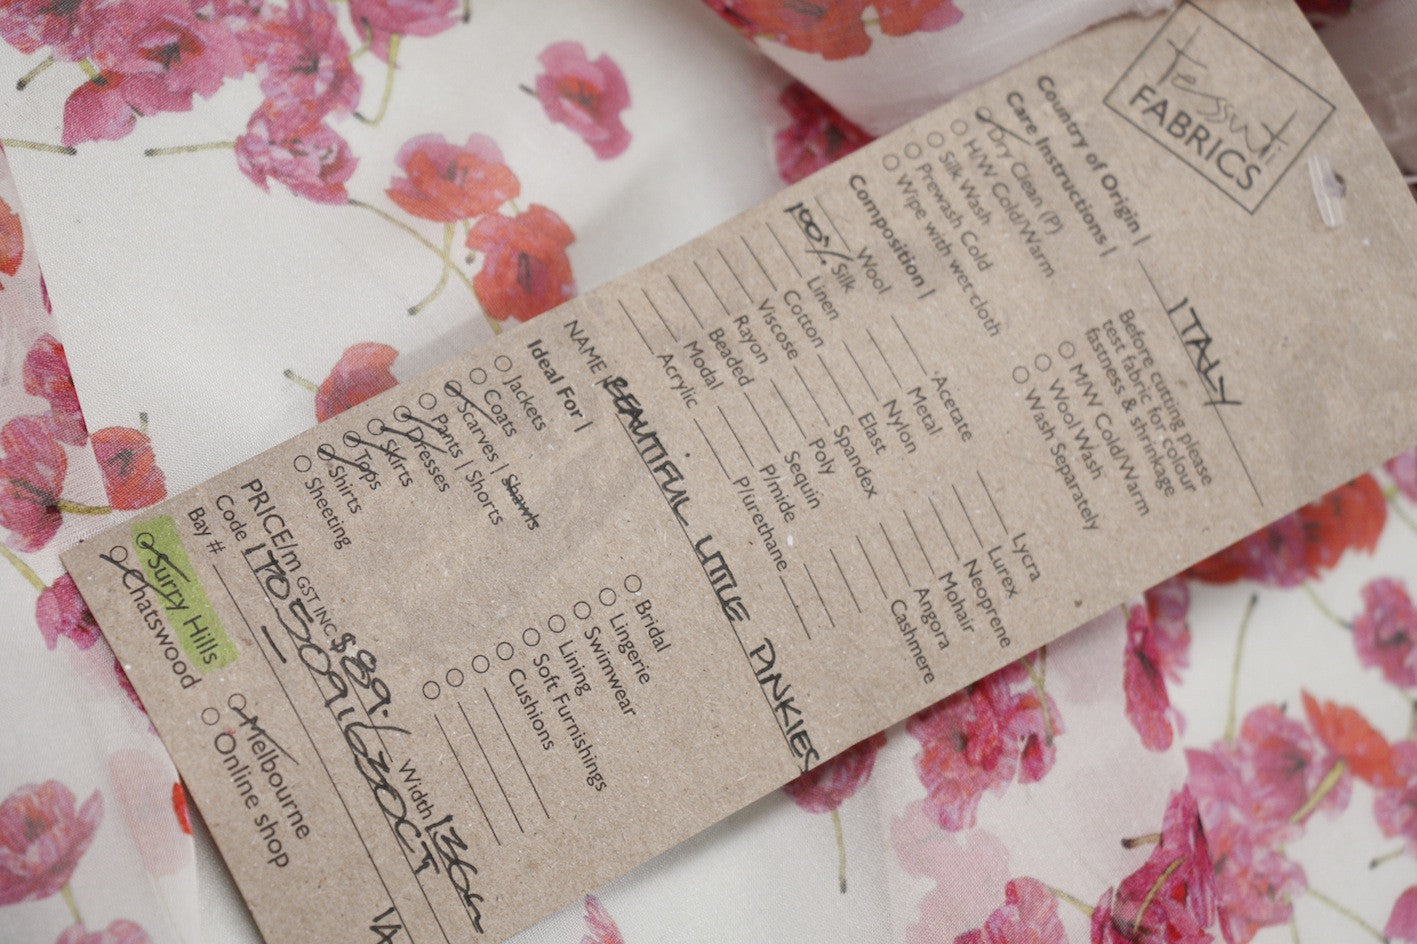 Tessuti
FABRICS
Country of Origin | ITALY
Care Instructions |
Dry Clean (P)
H/W Cold/Warm
Silk Wash
Prewash Cold
Wipe with wet cloth
Before cutting please
test fabric for colour
fastness & shrinkage
M/W Cold/Warm
Wool Wash
Wash Separately
Composition |
Wool
100% Silk
Linen
Cotton
Viscose
Rayon
Beaded
Modal
Acrylic
Acetate
Metal
Nylon
Elast
Spandex
Poly
Sequin
P/mide
P/urethane
Lycra
Lurex
Neoprene
Mohair
Angora
Cashmere
NAME | BEAUTIFUL LITTLE PINKIES
Ideal For |
Jackets
Coats
Scarves | Shawls
Pants | Shorts
Dresses
Skirts
Tops
Shirts
Sheeting
Bridal
Lingerie
Swimwear
Lining
Soft Furnishings
Cushions
PRICE/m GST INC $89. Width 136cm
Code
Bay # —
Surry Hills
Chatswood
Melbourne
Online shop